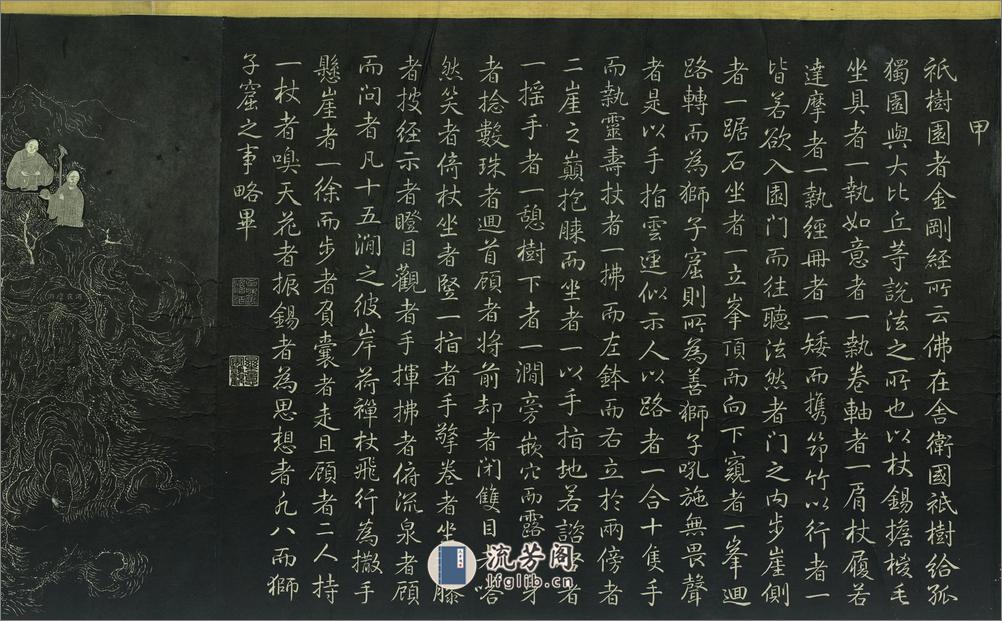 甲
祇樹園者金剛經所云佛在舍衛國祇樹給孤
獨園與大比丘等說法之所也以杖錫擔椶毛
坐具者一執如意者一執卷軸者一肩杖履若
達摩者一執經冊者一矮而携笻竹以行者一
皆若欲入園門而往聽法然者門之內步崖側
者一踞石坐者一立峯頂而向下窺者一峯迴
路轉而為獅子窟則所為善獅子吼施無畏聲
者是以手指雲逕似示人以路者一合十隻手
而執靈壽杖者一拂而左鉢而右立於兩傍者
二崖之巔抱膝而坐者一以手指地若諮
者
一搖手者一憩樹下者一澗旁嵌穴而露
身
者捻數珠者迴首顧者將前却者閉雙目
嗒
然笑者倚杖坐者豎一指者手擎卷者坐
藤
者披經示者瞪目觀者手揮拂者俯流泉者顧
而问者凡十五澗之彼岸荷禪杖飛行為撒手
懸崖者一徐而步者負囊者走且顧者二人持
一杖者嗅天花者振錫者為思想者凢八而獅
子窟之事略畢
流芳阁
lfglib.cn